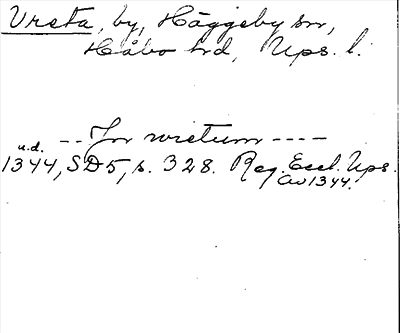 Vreta, by, Häggeby sn,
Håbo hd, Ups. l.
--Jn wretum----
u.d.
1344, SD5, s. 328. Reg. Eccl. Ups.
av 1344.